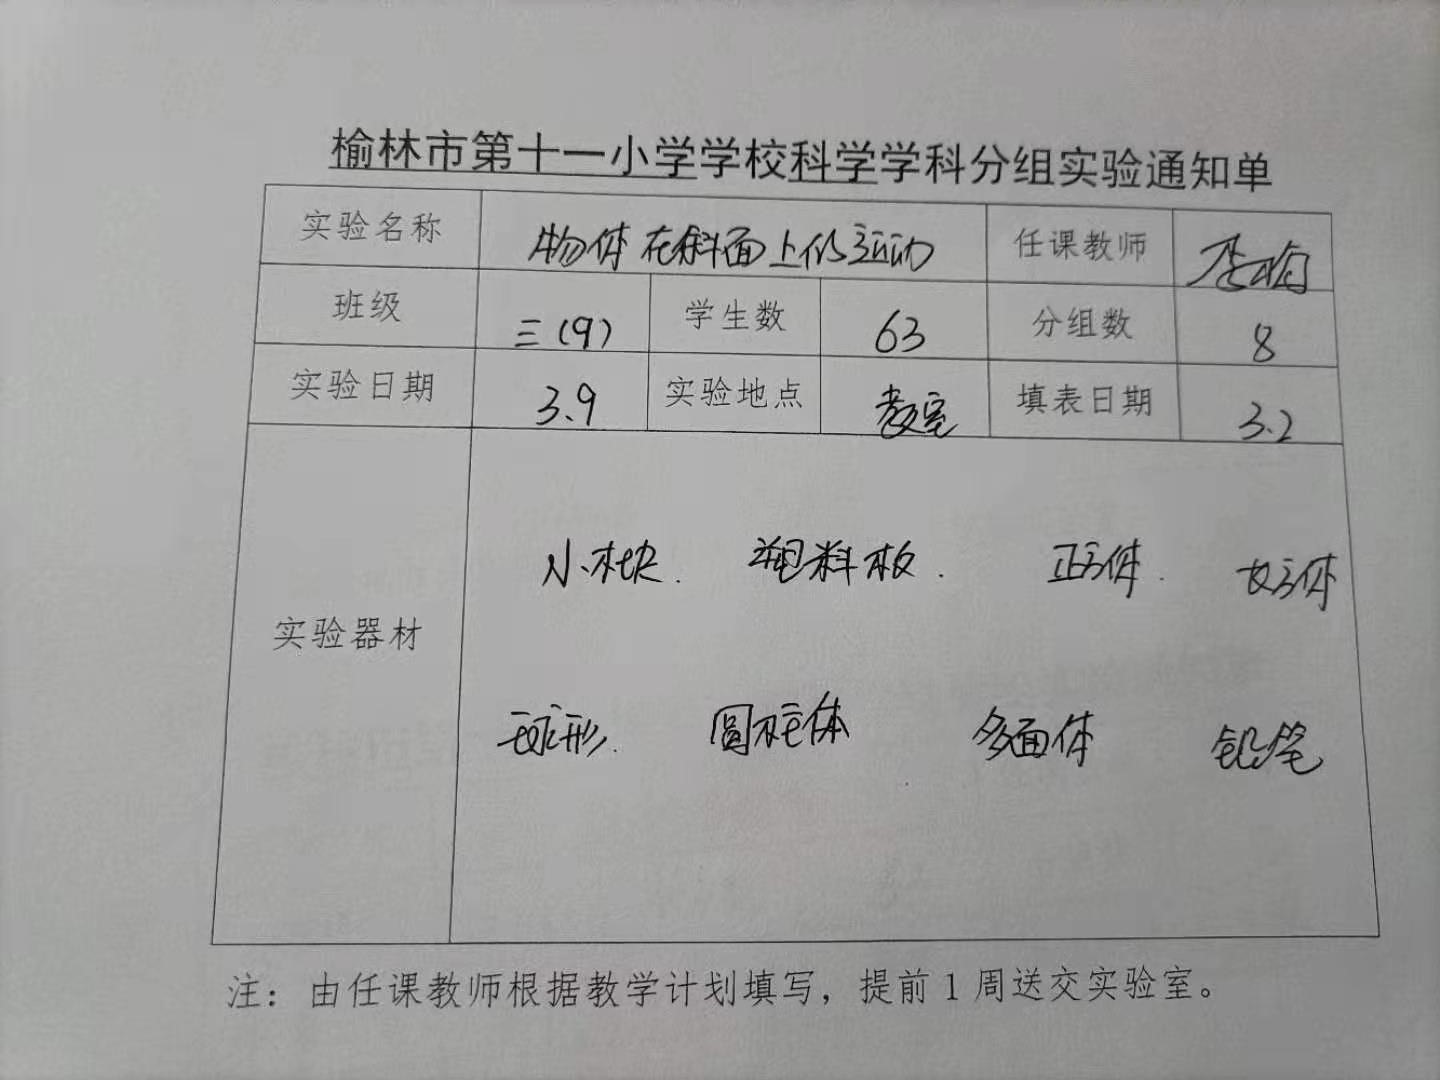 榆林市第十一小学学校科学学科分组实验通知单
实验名称 物体在斜面上的运动 任课教师 李
班级 三(9) 学生数 63 分组数 8
实验日期 3.9 实验地点 教室 填表日期 3.2
实验器材
小木块. 塑料板. 正方体. 长方体
球形. 圆柱体 多面体 铅笔
注：由任课教师根据教学计划填写，提前1周送交实验室。